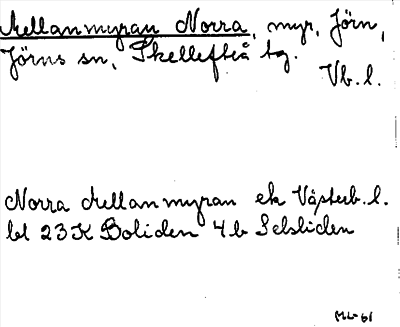 Mellanmyran Norra, myr, Jörn,
Jörns sn, Skellefteå tg.
Vb. l.
Norra Mellanmyran ek Västerb. l.
bl 23 K Boliden 4 b Selsliden